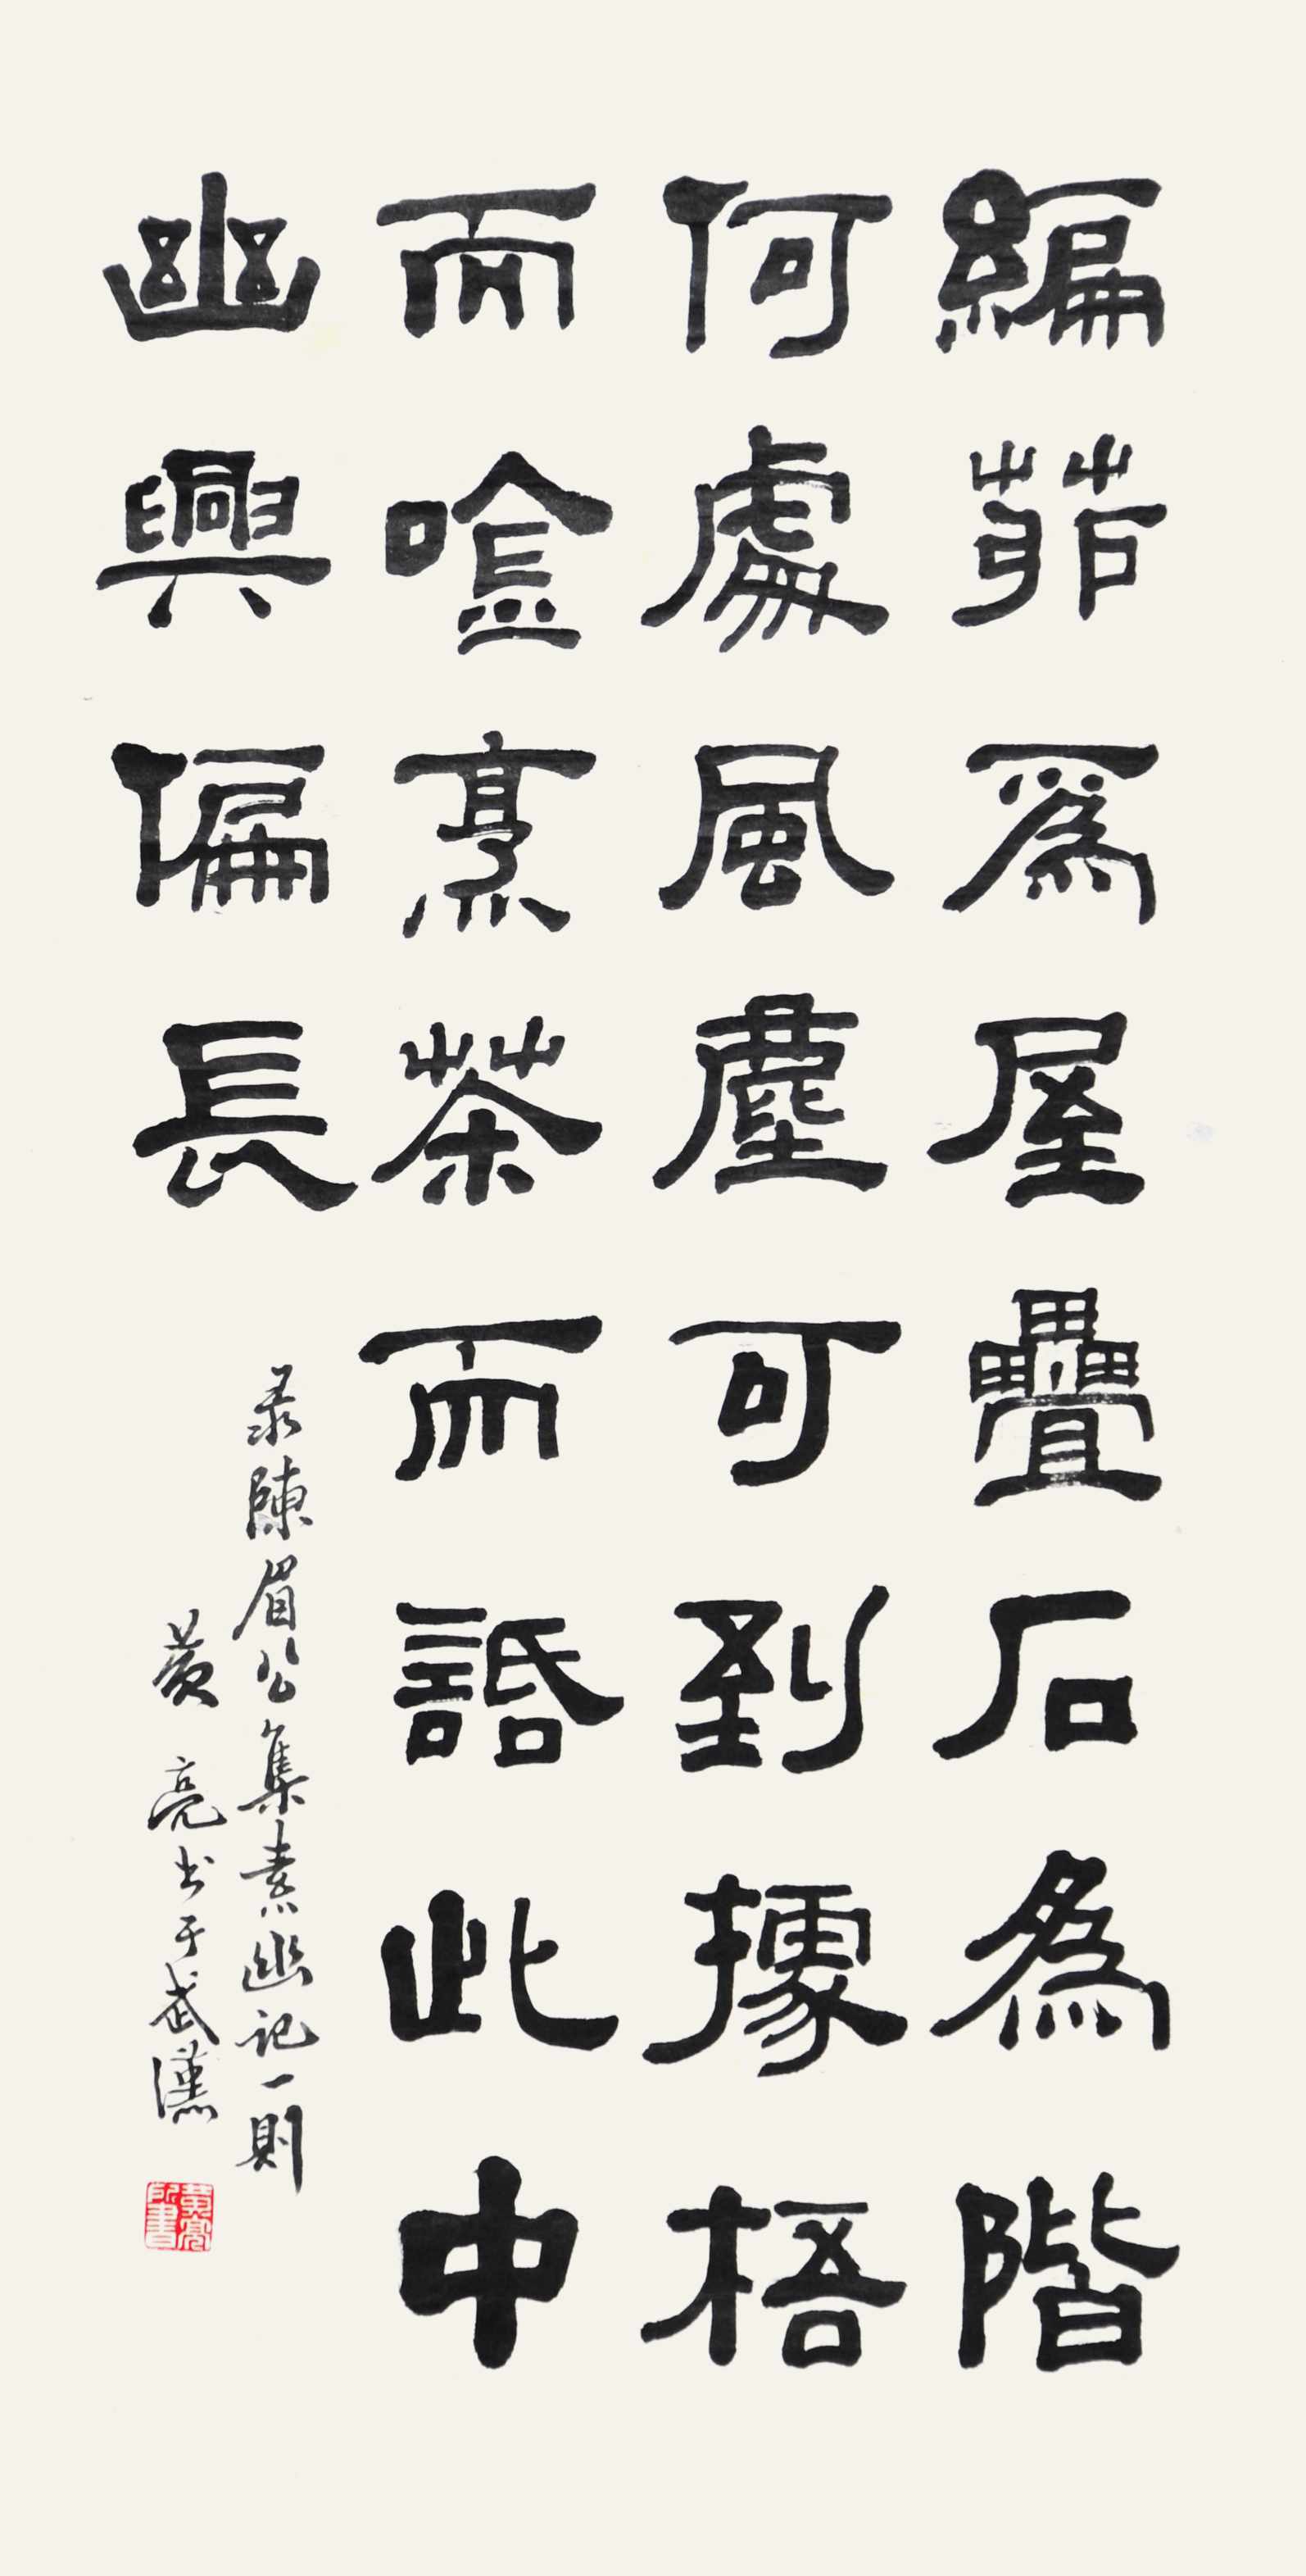 編茆為屋疊石為階
何處風塵可到據梧
而唫烹茶而話此中
幽興偏長
录陳眉公集素幽記一則
黄亮书于武漢
黄亮所書